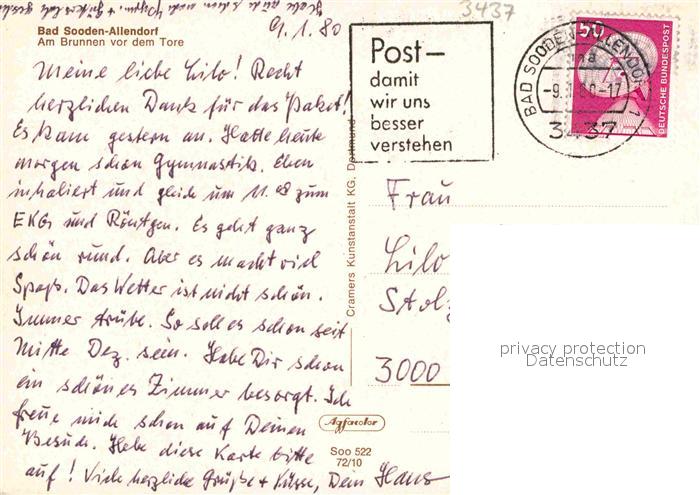 9.1.80
3437
Bad Sooden-Allendorf
Am Brunnen vor dem Tore
Meine liebe Lilo! Recht
herzlichen Dank für das Paket!
Es kam gestern an. Hatte heute
morgen schon Gymnastik. Eben
inhaliert und gleich um 11.00 zum
EKG und Röntgen. Es geht ganz
schön rund. Aber es macht viel
Spaß. Das Wetter ist nicht schön.
Immer trübe. So soll es schon seit
Mitte Dez. sein. Habe Dir schon
ein schönes Zimmer besorgt. Ich
freue mich schon auf Deinen
Besuch. Hebe diese Karte bitte
auf! Viele herzliche Grüße + Küsse, Dein Hans
Post–
damit
wir uns
besser
verstehen
BAD SOODEN-ALLENDORF 1
a
-9.1.80-17
3437
50
DEUTSCHE BUNDESPOST
Cramers Kunstanstalt KG, Dortmund
Frau
Lilo
Stolz
3000
Agfacolor
Soo 522
72/10
privacy protection
Datenschutz